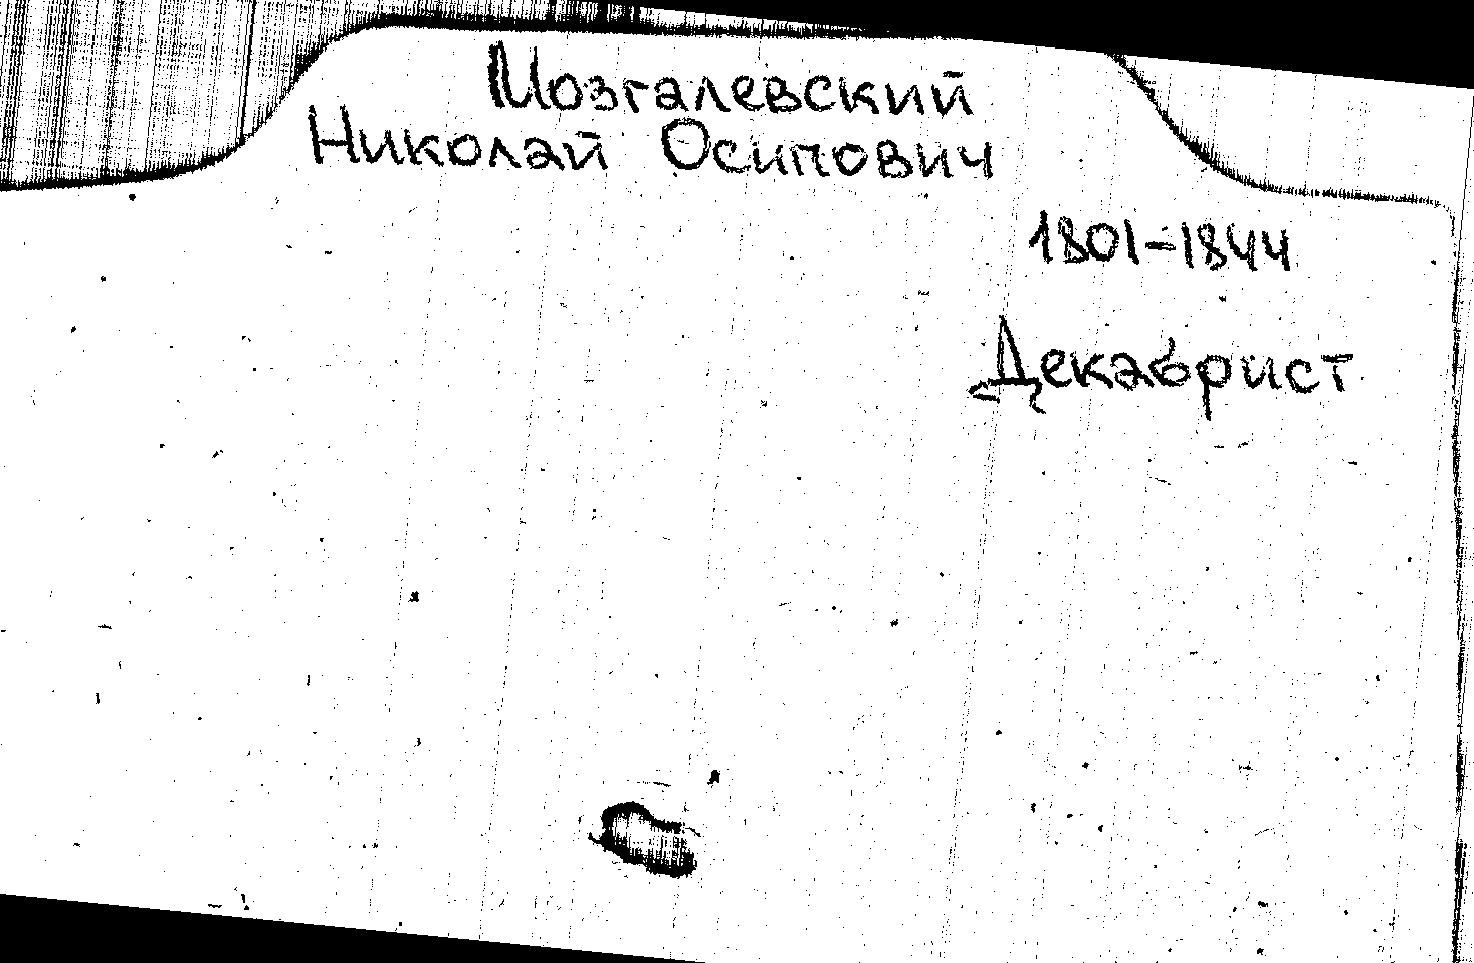 Мозгалевский
Николай Осипович
1801-1844
Декабрист